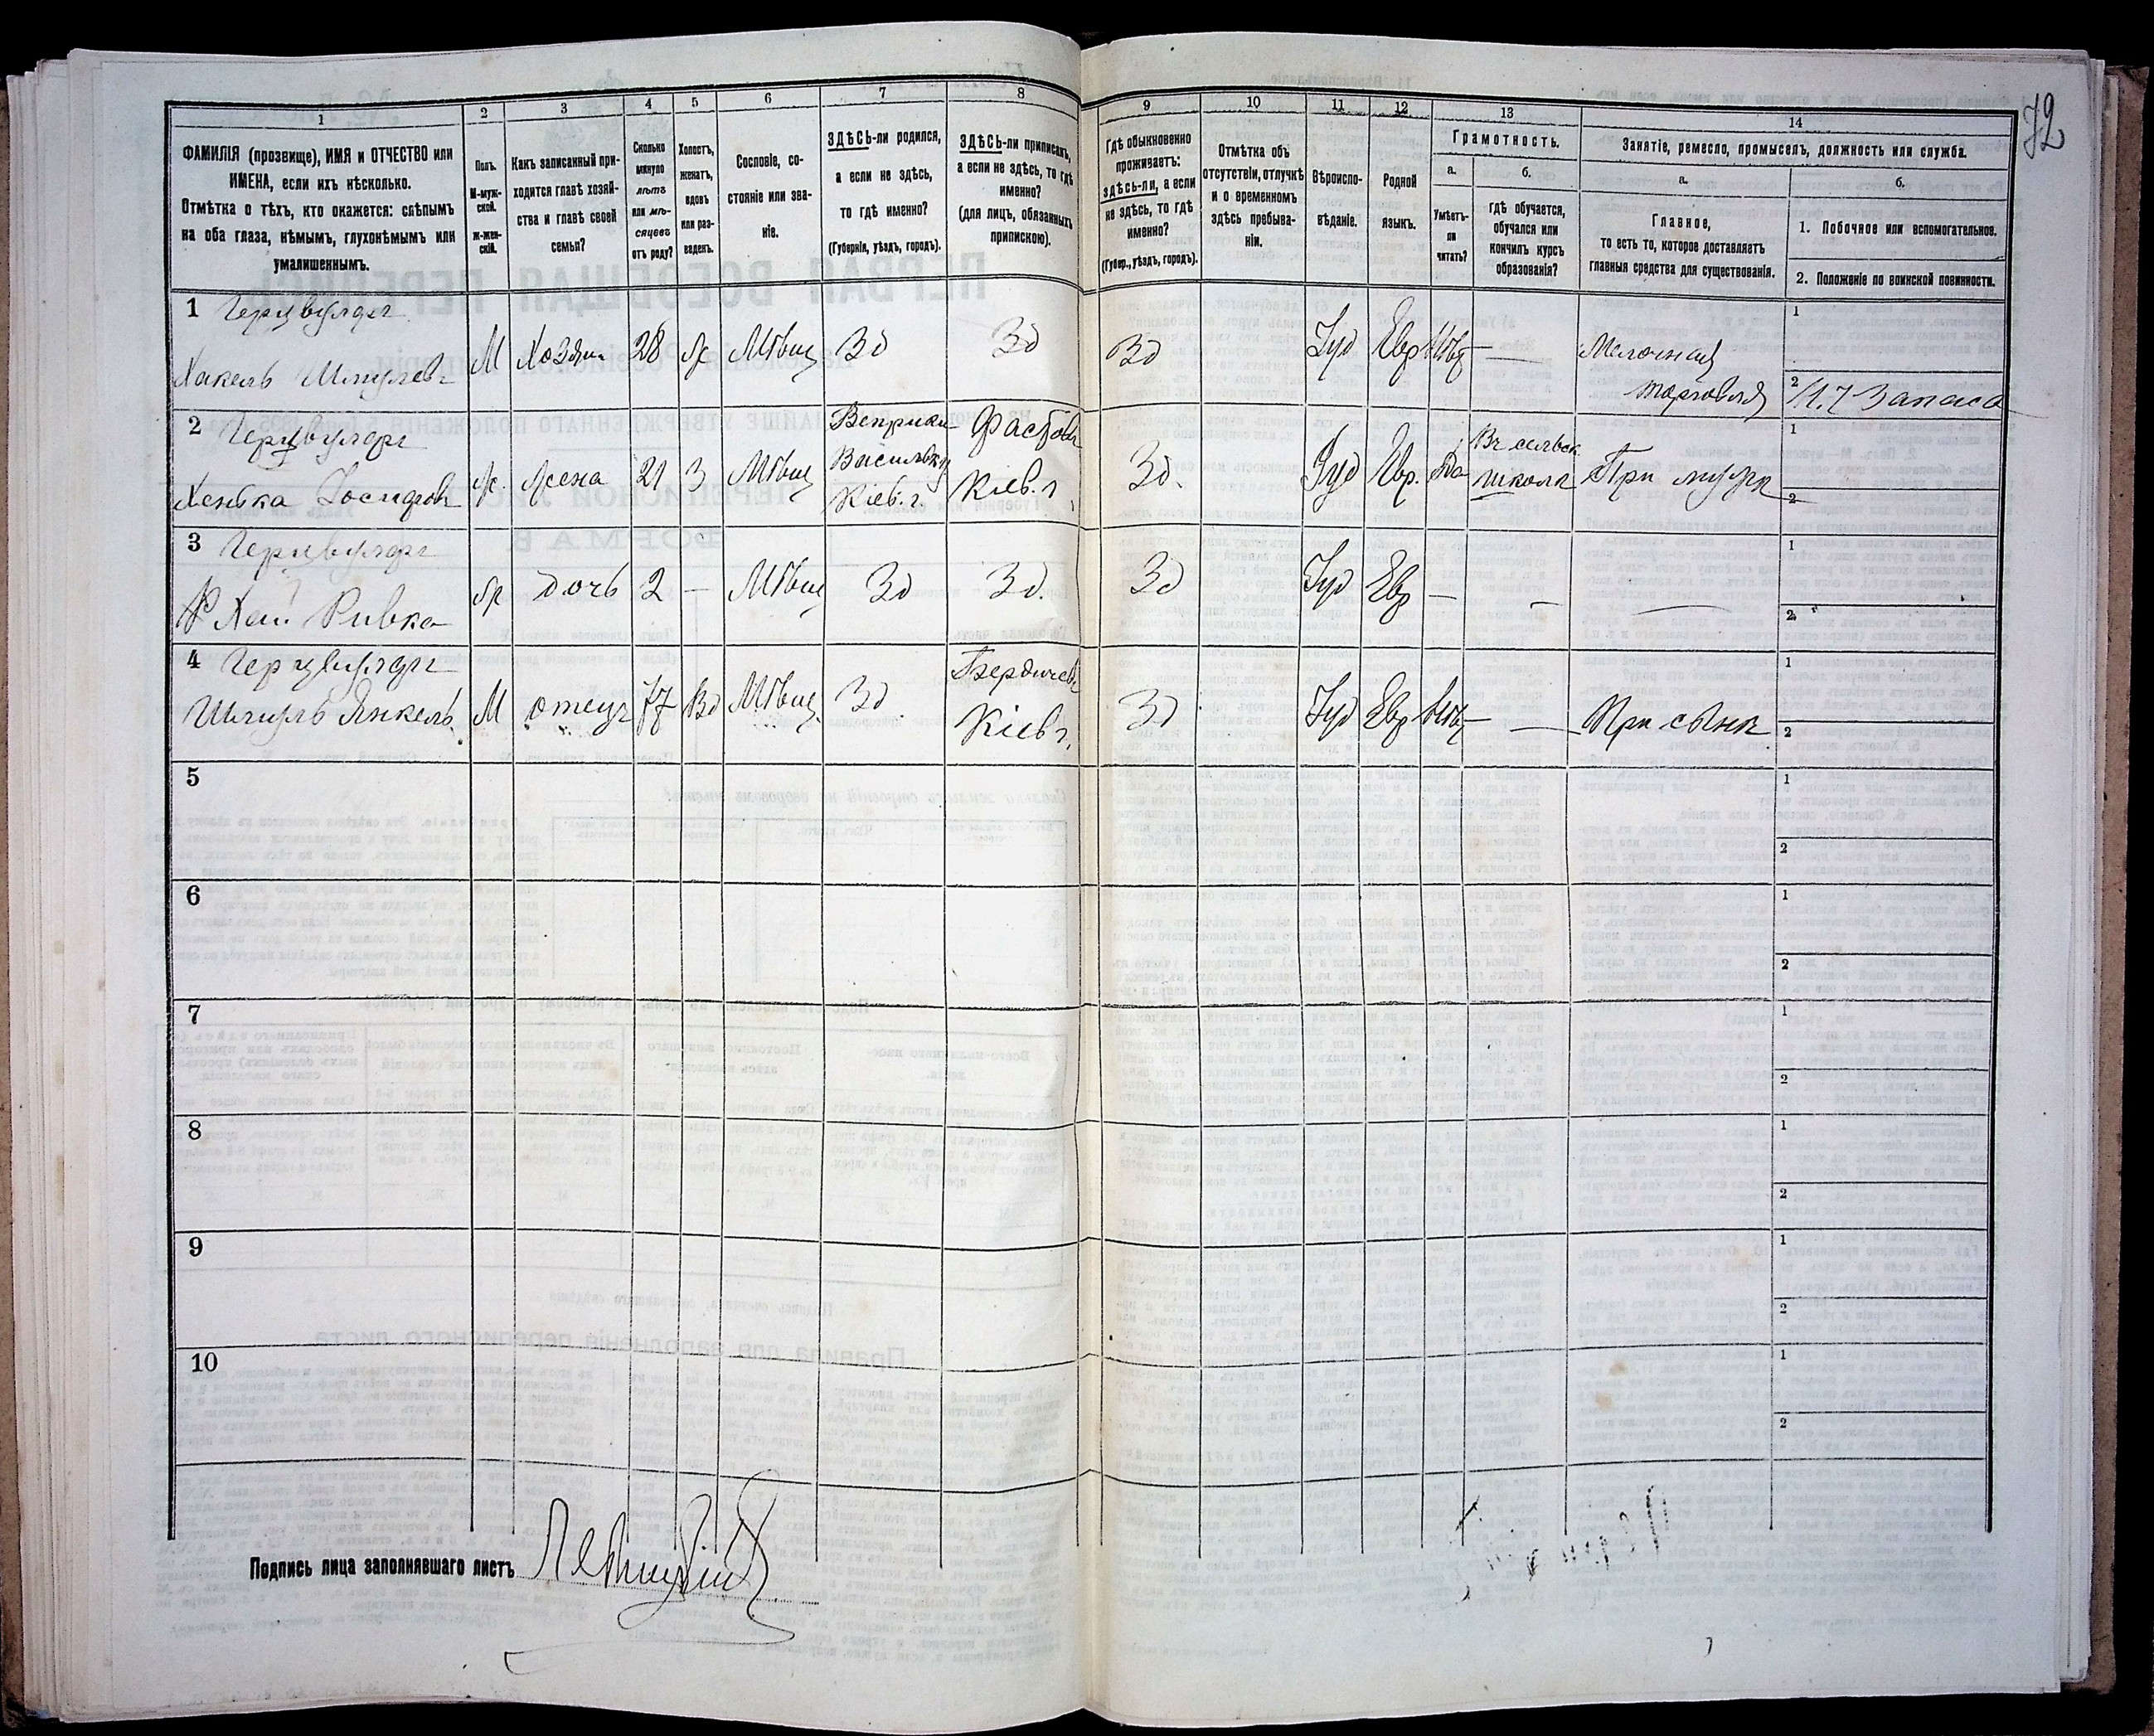 72
1
2
3
4
5
6
7
8
9
10
11
12
13
14
ФАМИЛІЯ (прозвище), ИМЯ и ОТЧЕСТВО или
ИМЕНА, если ихъ нѣсколько.
Отмѣтка о тѣхъ, кто окажется: слѣпымъ
на оба глаза, нѣмымъ, глухонѣмымъ или
умалишеннымъ.
Полъ.
М-муж-
ской.
Ж-жен-
скій.
Какъ записанный при-
ходится главѣ хозяй-
ства и главѣ своей
семьи?
Сколько
минуло
лѣтъ
или мѣ-
сяцевъ
отъ роду?
Холостъ,
женатъ,
вдовъ
или раз-
веденъ.
Сословіе, со-
стояніе или зва-
ніе.
ЗДѢСЬ-ли родился,
а если не здѣсь,
то гдѣ именно?
(Губернія, уѣздъ, городъ).
ЗДѢСЬ-ли приписанъ,
а если не здѣсь, то гдѣ
именно?
(для лицъ, обязанныхъ
припискою).
Гдѣ обыкновенно
проживаетъ:
здѣсь-ли, а если
не здѣсь, то гдѣ
именно?
(Губер., уѣздъ, городъ).
Отмѣтка объ
отсутствіи, отлучкѣ
и о временномъ
здѣсь пребыва-
ніи.
Вѣроиспо-
вѣданіе.
Родной
языкъ.
Грамотность.
а.
Умѣетъ-
ли
читать?
б.
гдѣ обучается,
обучался или
кончилъ курсъ
образованія?
Занятіе, ремесло, промыселъ, должность или служба.
а.
Главное,
то есть то, которое доставляетъ
главныя средства для существованія.
б.
1. Побочное или вспомогательное.
2. Положеніе по воинской повинности.
1 М Хозяи 28 Ж Мѣщ Зд Зд Зд Іуд Евр Нѣт —
Мелочная
торговля
1
2
2
Веприки Фастовъ
Васильк
Кіев. г. Кіев. г
Ж. Жена 21 З Мѣщ Зд. Іуд Евр. Да
Въ сельск.
школѣ
При мужѣ
1
2
3
Хая Ривка Ж дочь 2 — Мѣщ Зд Зд. Зд Іуд Евр — —
1
2
4
Бердичевъ
Шмуль Янкель М отецъ 77 Вд Мѣщ. Зд Кіев г. Зд Іуд Евр Нѣт — При сынѣ
1
2
5
1
2
6
1
2
7
1
2
8
1
2
9
1
2
10
1
2
Подпись лица заполнявшаго листъ